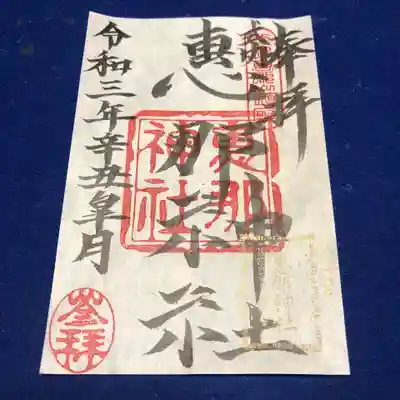 奉拝
惠那神社
惠那
神社
令和三年辛丑皐月
登拝